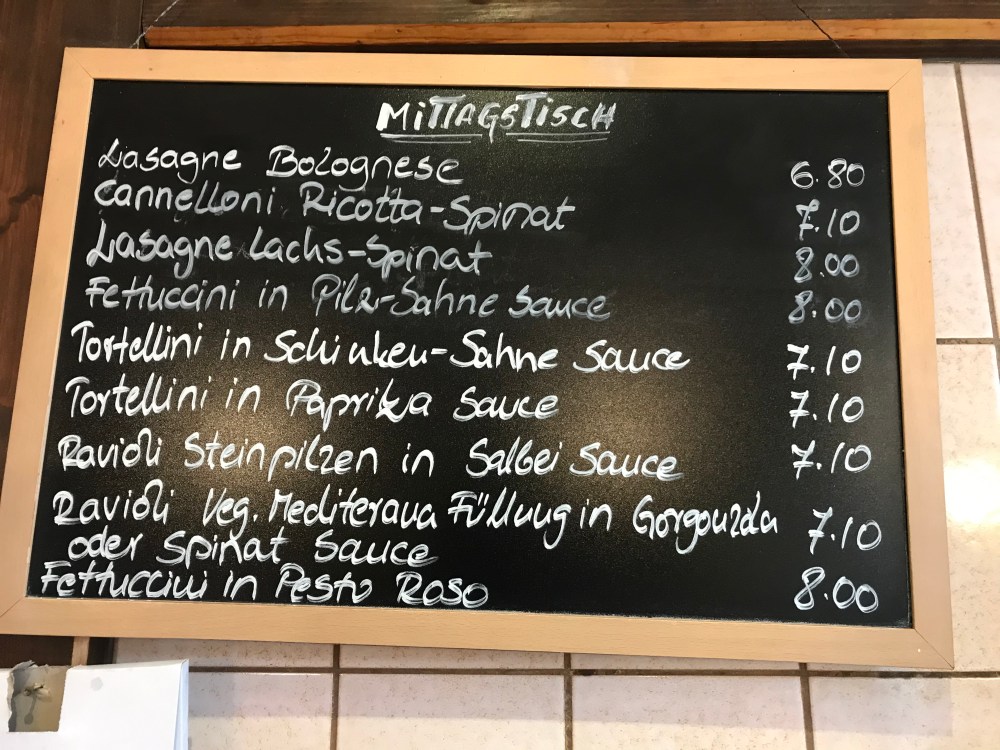 MITTAGSTISCH
Lasagne Bolognese 6.80
Cannelloni Ricotta-Spinat 7.10
Lasagne Lachs-Spinat 8.00
Fettuccini in Pilz-Sahne Sauce 8.00
Tortellini in Schinken-Sahne Sauce 7.10
Tortellini in Paprika Sauce 7.10
Ravioli Steinpilzen in Salbei Sauce 7.10
Ravioli Veg. Mediterana Füllung in Gorgonzola 7.10
oder Spinat Sauce
Fettuccini in Pesto Roso 8.00